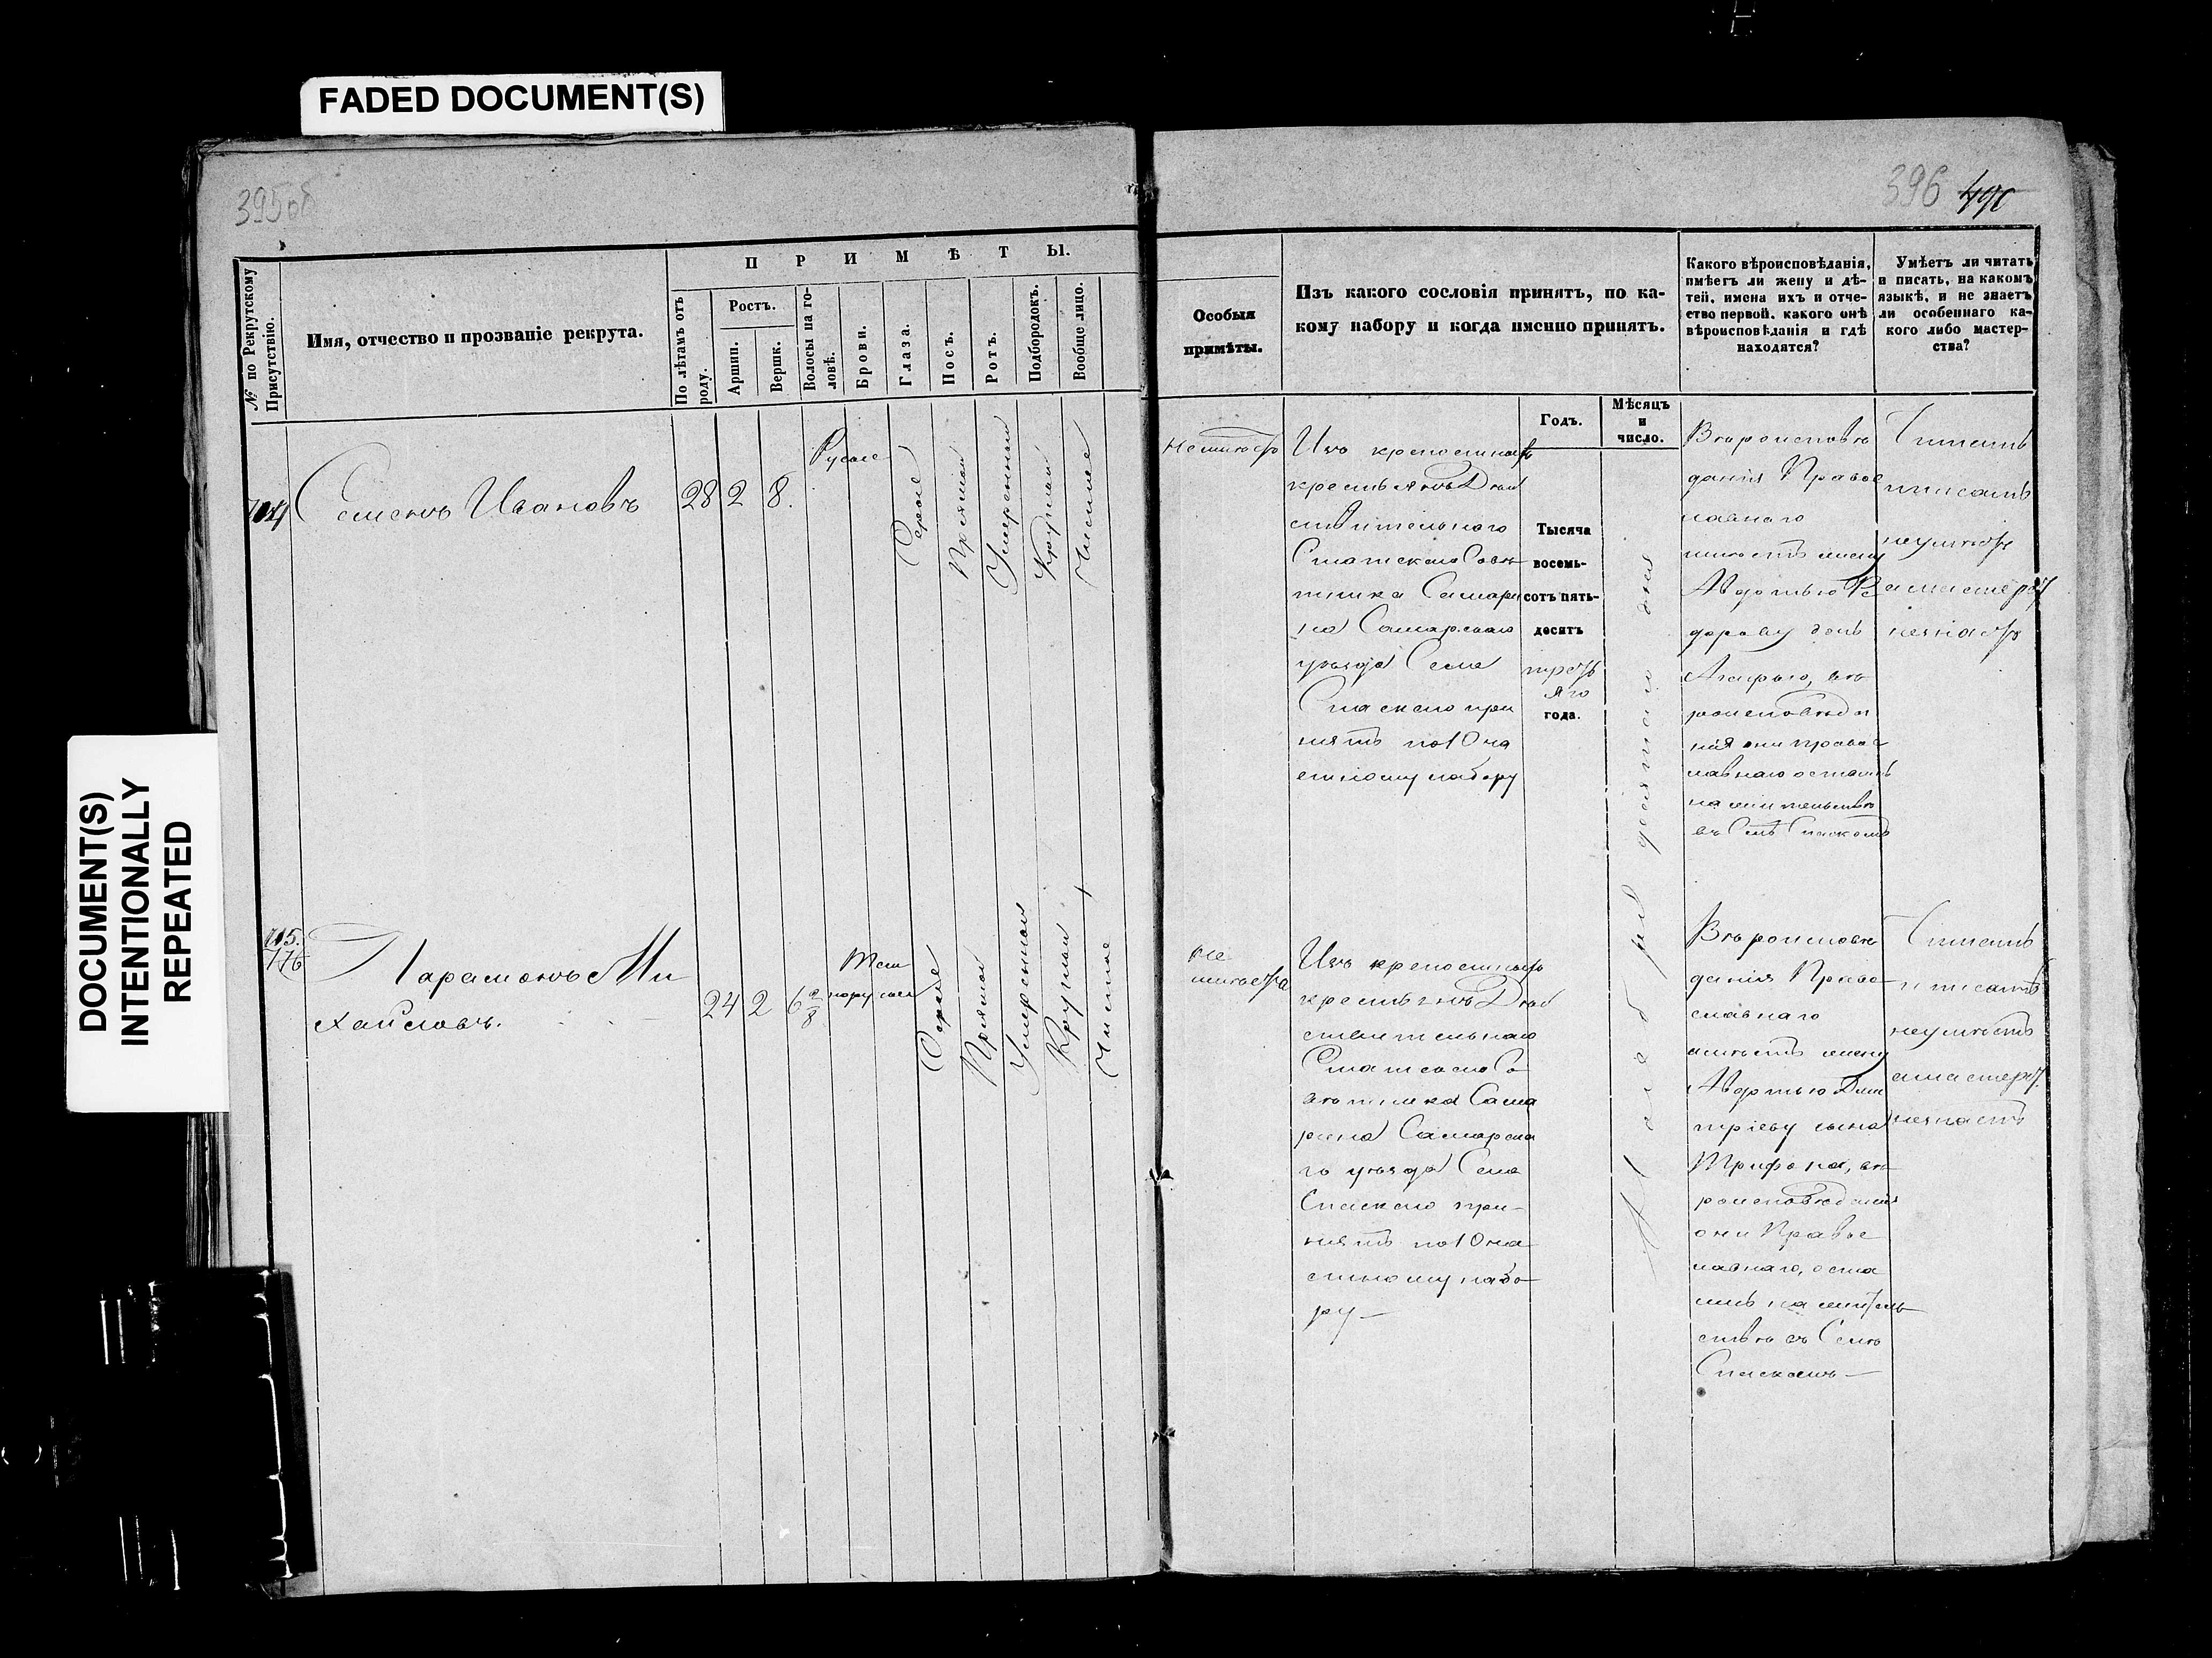 FADED DOCUMENT(S)
DOCUMENT(S)
INTENTIONALLY
REPEATED
395об
№ по Рекрутскому
Присутствію.
Имя, отчество и прозваніе рекрута.
П Р И М Ѣ Т Ы.
По лѣтамъ отъ
роду.
Ростъ.
Аршин.
Вершк.
Волосы на го-
ловѣ.
Брови.
Глаза.
Носъ.
Ротъ.
Подбородокъ.
Вообще лицо.
Семенъ Ивановъ
28
2
8.
Русые
Серые
Прямой
Умеренный
Круглой
Чистое
Парамонъ Ми
хайловъ.
24
2
6
Серые
Прямой
Умеренный
Круглой
Чистое
396
Особыя
примѣты.
Изъ какого сословія принятъ, по ка-
кому набору и когда именно принятъ.
Какого вѣроисповѣданія,
имѣетъ ли жену и дѣ-
тей, имена ихъ и отче-
ство первой, какого онѣ
вѣроисповѣданія и гдѣ
находятся?
Умѣетъ ли читать
и писать, на какомъ
языкѣ, и не знаетъ
ли особеннаго ка-
кого либо мастер-
ства?
Годъ.
Мѣсяцъ
и
число.
неимѣетъ
Изъ крепостныхъ
крестьянъ Дѣй
ствительнаго
Статскаго Совѣ
тника Самари
на Самарскаго
уѣзда Села
Спаскаго при
нятъ по 10 ча
стному набору
Тысяча
восемь-
сотъ пять-
десятъ
третья
яго
года.
Вѣроисповѣ
данія Правос
лавнаго
имѣетъ жену
Авдотью Ѳе
дорову дочь
Агафью, вѣ
роисповѣда
нія они правос
лавнаго остались
на жительствѣ
въ Селѣ Спаскомъ
Читать
писать
неумѣетъ
а мастерст.
незнаетъ
Не
имѣетъ
Изъ крепостныхъ
крестьянъ Дѣй
ствительнаго
Статскаго Со
вѣтника Сама
рина Самарска
го уѣзда Села
Спаскаго при-
нятъ по 10 ча
стному набо-
ру —
Вѣроисповѣ
данія Правос-
славнаго
имѣетъ жену
Авдотью Дми
тріеву сына
Трифона, вѣ
роисповѣданія
они Правос
лавнаго, оста
лись на житель-
ствѣ въ Селѣ
Спаскомъ —
Читать
и писать
неумѣетъ
а мастерст.
незнаетъ